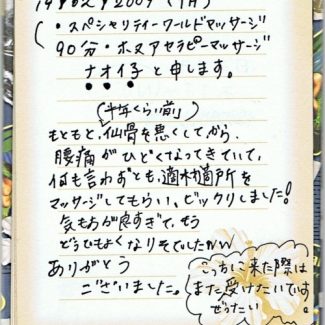 (・スペシャリティーワールドマッサージ
90分・ホヌアセラピーマッサージ
ナオイ子と申します。
(半年くらい前)
もともと、仙骨を悪くしてから、
腰痛がひどくなってきていて、
何も言わずとも、適材箇所を
マッサージしてもらい、ビックリしました!
気もちが良すぎて、もう
どうでもよくなりそでしたww
ありがとう
ございました。
こっちに来た際は
また受けたいです
ぜったい